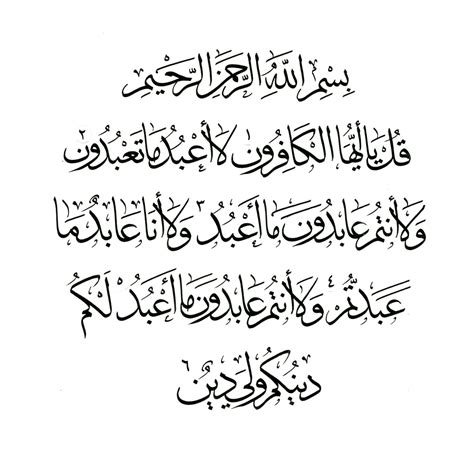 بِسْمِ اللَّهِ الرَّحْمَنِ الرَّحِيمِ
قُلْ يَا أَيُّهَا الْكَافِرُونَ لَا أَعْبُدُ مَا تَعْبُدُونَ ٢
وَلَا أَنتُمْ عَابِدُونَ مَا أَعْبُدُ ٣ وَلَا أَنَا عَابِدٌ مَا
عَبَدتُّمْ ٤ وَلَا أَنتُمْ عَابِدُونَ مَا أَعْبُدُ لَكُمْ
دِينُكُمْ وَلِيَ دِينِ ٦